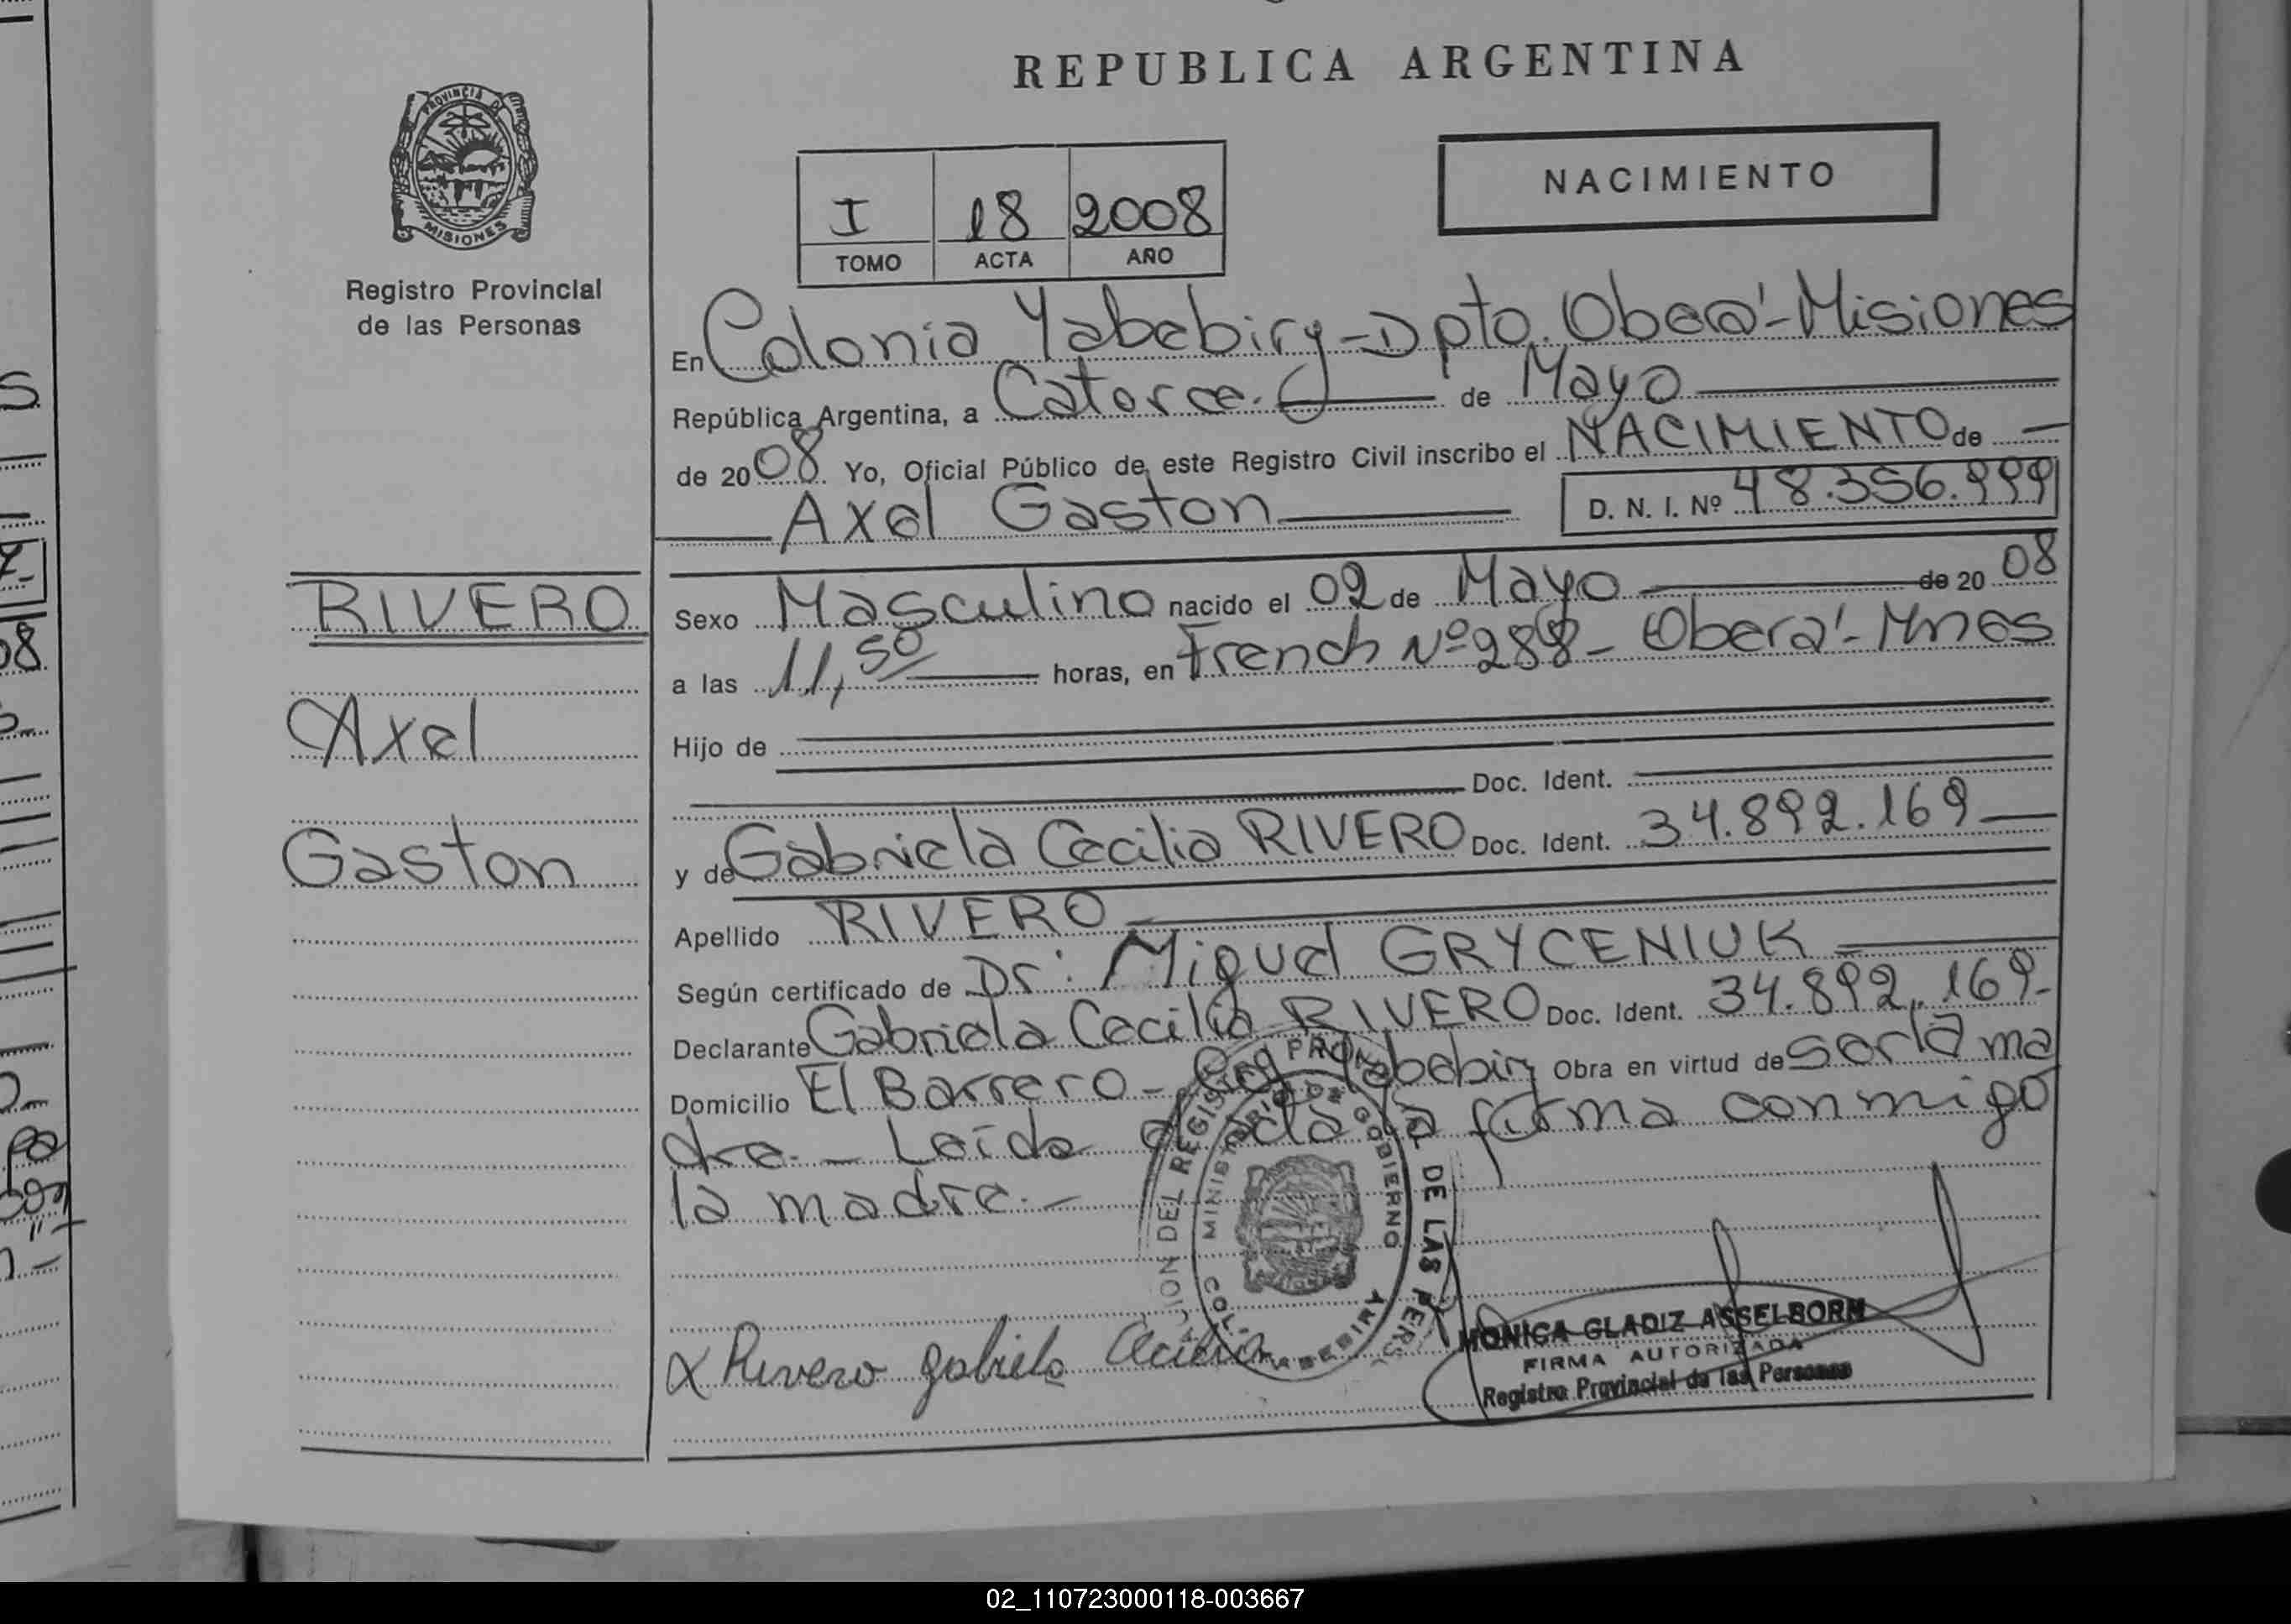 REPUBLICA ARGENTINA
PROVINCIA DE
MISIONES
Registro Provincial
de las Personas
NACIMIENTO
I 18 2008
TOMO ACTA AÑO
En Colonia Yabebiry - Dpto. Oberá - Misiones
República Argentina, a Catorce. de Mayo
de 2008. Yo, Oficial Público de este Registro Civil inscribo el NACIMIENTO de
Axel Gaston D. N. I. Nº 48.356.999
RIVERO
Axel
Gaston
Sexo Masculino nacido el 02 de Mayo de 20 08
a las 11,50 horas, en French Nº 288 - Oberá - Mnes
Hijo de
Doc. Ident.
y de Gabriela Cecilia RIVERO Doc. Ident. 34.892.169
Apellido RIVERO
Según certificado de Dr: Miguel GRYCENIUK
Declarante Gabriela Cecilia RIVERO Doc. Ident. 34.892.169-
Domicilio El Barrero - Yabebiry Obra en virtud de Ser la ma
dre. - Leída el acta la firma conmigo
la madre. -
MINISTERIO DE GOBIERNO
DEL REGISTRO DE LAS PERS
COL. YABEBIRY
x Rivero gabriela Cecilia
MONICA GLADIZ ASSELBORN
FIRMA AUTORIZADA
Registro Provincial de las Personas
02_110723000118-003667